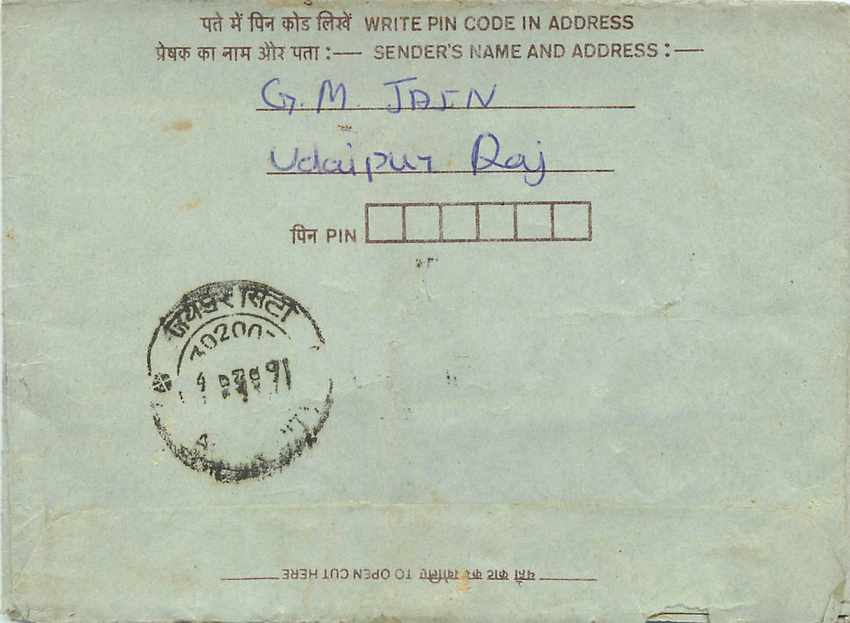 पते में पिन कोड लिखें WRITE PIN CODE IN ADDRESS
प्रेषक का नाम और पता :— SENDER'S NAME AND ADDRESS :—
G. M. JAIN
Udaipur Raj
पिन PIN
जयपुर सिटी
30200
91
यहाँ काट कर खोलिए TO OPEN CUT HERE